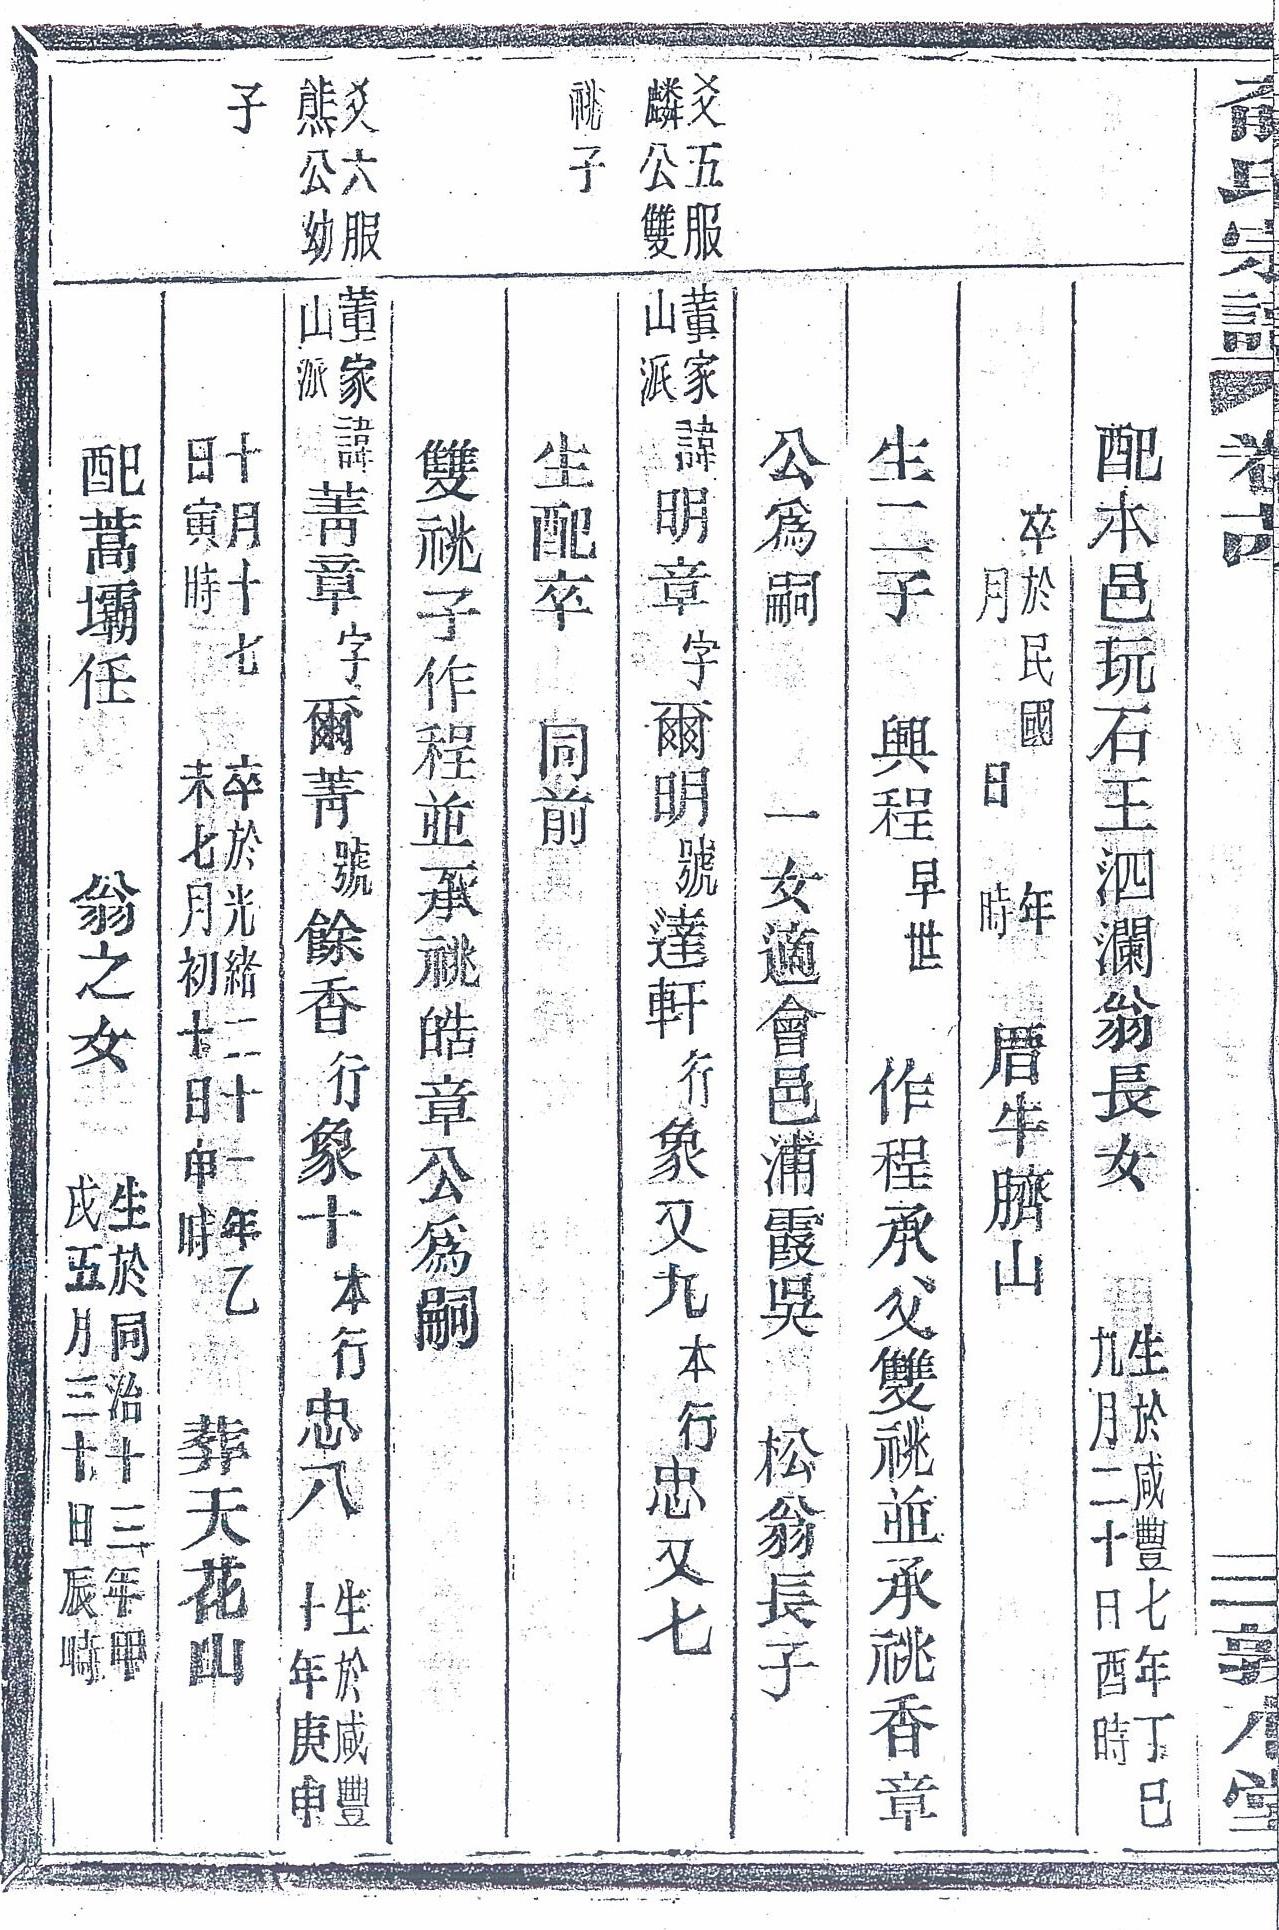 氏宗譜 卷六 三 堂
配本邑玩石王泗瀾翁長女 生於咸豐七年丁巳九月二十日酉時
卒於民國 年 月 日 時 厝牛臍山
生二子 興程早世 作程承父雙祧並承祧香章
公爲嗣 一女適會邑浦霞吳 松翁長子
爻五服麟公雙 董家山派諱明章字爾明號達軒行象又九本行忠又七
祧子 生配卒 同前
雙祧子作程並承祧皓章公爲嗣
爻六服熊公幼 董家山派諱菁章字爾菁號餘香行象十本行忠八 生於咸豐十年庚申
子 十月十七日寅時 卒於光緒二十一年乙未七月初十日申時 葬天花山
配蒿壩任 翁之女 生於同治十三年甲戌五月三十日辰時